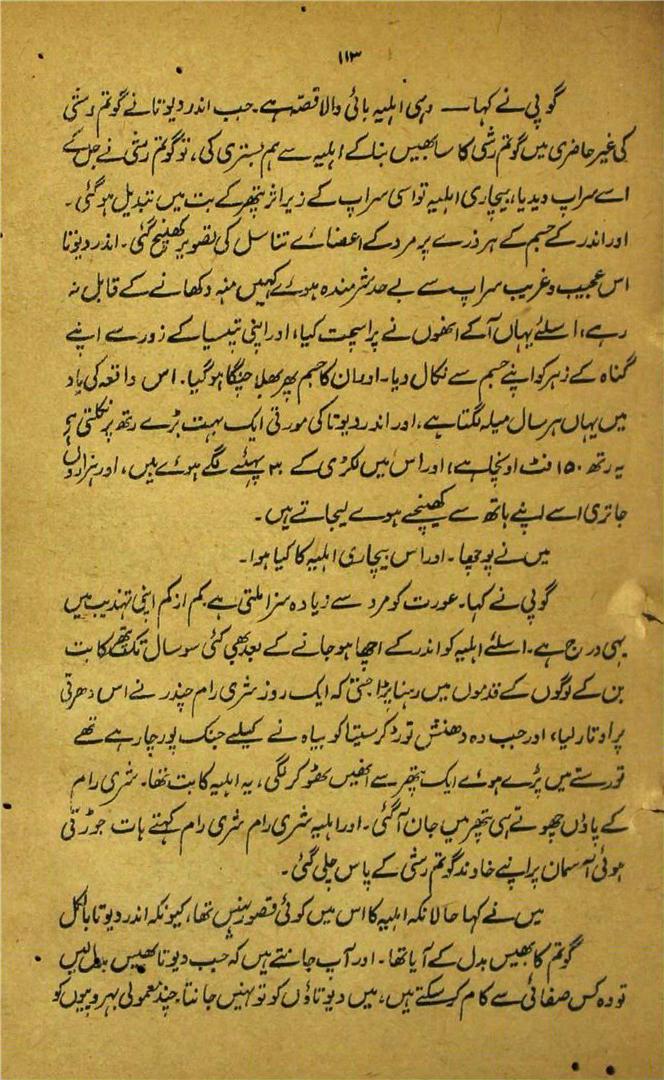 ۱۱۳
گوپی نے کہا — وہی اہلیہ بائی والا قصّہ ہے۔ جب اندر دیوتا نے گوتم رشی
کی غیر حاضری میں گوتم رشی کا سا بھیس بنا کے اہلیہ سے ہم بستری کی، تو گوتم رشی نے جل کے
اسے سراپ دیدیا، بیچاری اہلیہ تو اسی سراپ کے زیر اثر پتھر کے بت میں تبدیل ہو گئی۔
اور اندر کے جسم کے ہر ذرے پر مرد کے اعضائے تناسل کی تصویر کھنچ گئی۔ اندر دیوتا
اس عجیب و غریب سراپ سے بے حد شرمندہ ہوئے کہیں منہ دکھانے کے قابل نہ
رہے، اسلئے یہاں آ کے انھوں نے پراسچت کیا، اور اپنی تپسیا کے زور سے اپنے
گناہ کے زہر کو اپنے جسم سے نکال دیا۔ اور ان کا جسم پھر بھلا چنگا ہو گیا۔ اس واقعہ کی یاد
میں یہاں ہر سال میلہ لگتا ہے، اور اندر دیوتا کی مورتی ایک بہت بڑے رتھ پر نکلتی ہے
یہ رتھ ۱۵۰ فٹ اونچا ہے، اور اس میں لکڑی کے ۳۰ پہئے لگے ہوئے ہیں، اور ہزاروں
جاتری اسے اپنے ہاتھ سے کھینچے ہوے لیجاتے ہیں۔
میں نے پوچھا۔ اور اس بیچاری اہلیہ کا کیا ہوا۔
گوپی نے کہا۔ عورت کو مرد سے زیادہ سزا ملتی ہے کم از کم اپنی تہذیب میں
یہی درج ہے۔ اسلئے اہلیہ کو اندر کے اچھا ہو جانے کے بعد بھی کئی سو سال تک پتھر کا بت
بن کے لوگوں کے قدموں میں رہنا پڑا حتیٰ کہ ایک روز شری رام چندر نے اس دھرتی
پر اوتار لیا، اور جب وہ دھنش توڑ کر سیتا کو بیاہ نے کیلئے جنک پور جا رہے تھے
تو رستے میں پڑے ہوئے ایک پتھر سے انھیں ٹھوکر لگی، یہ اہلیہ کا بت تھا۔ شری رام
کے پاؤں چھوتے ہی پتھر میں جان آ گئی۔ اور اہلیہ شری رام شری رام کہتے ہات جوڑتی
ہوئی آسمان پر اپنے خاوند گوتم رشی کے پاس چلی گئی۔
میں نے کہا حالانکہ اہلیہ کا اس میں کوئی قصور نہیں تھا، کیونکہ اندر دیوتا بالکل
گوتم کا بھیس بدل کے آیا تھا۔ اور آپ جانتے ہیں کہ جب دیوتا بھیس بدل لیں
تو وہ کس صفائی سے کام کر سکتے ہیں، میں دیوتاؤں کو تو نہیں جانتا چند معمولی بہروپیوں کو